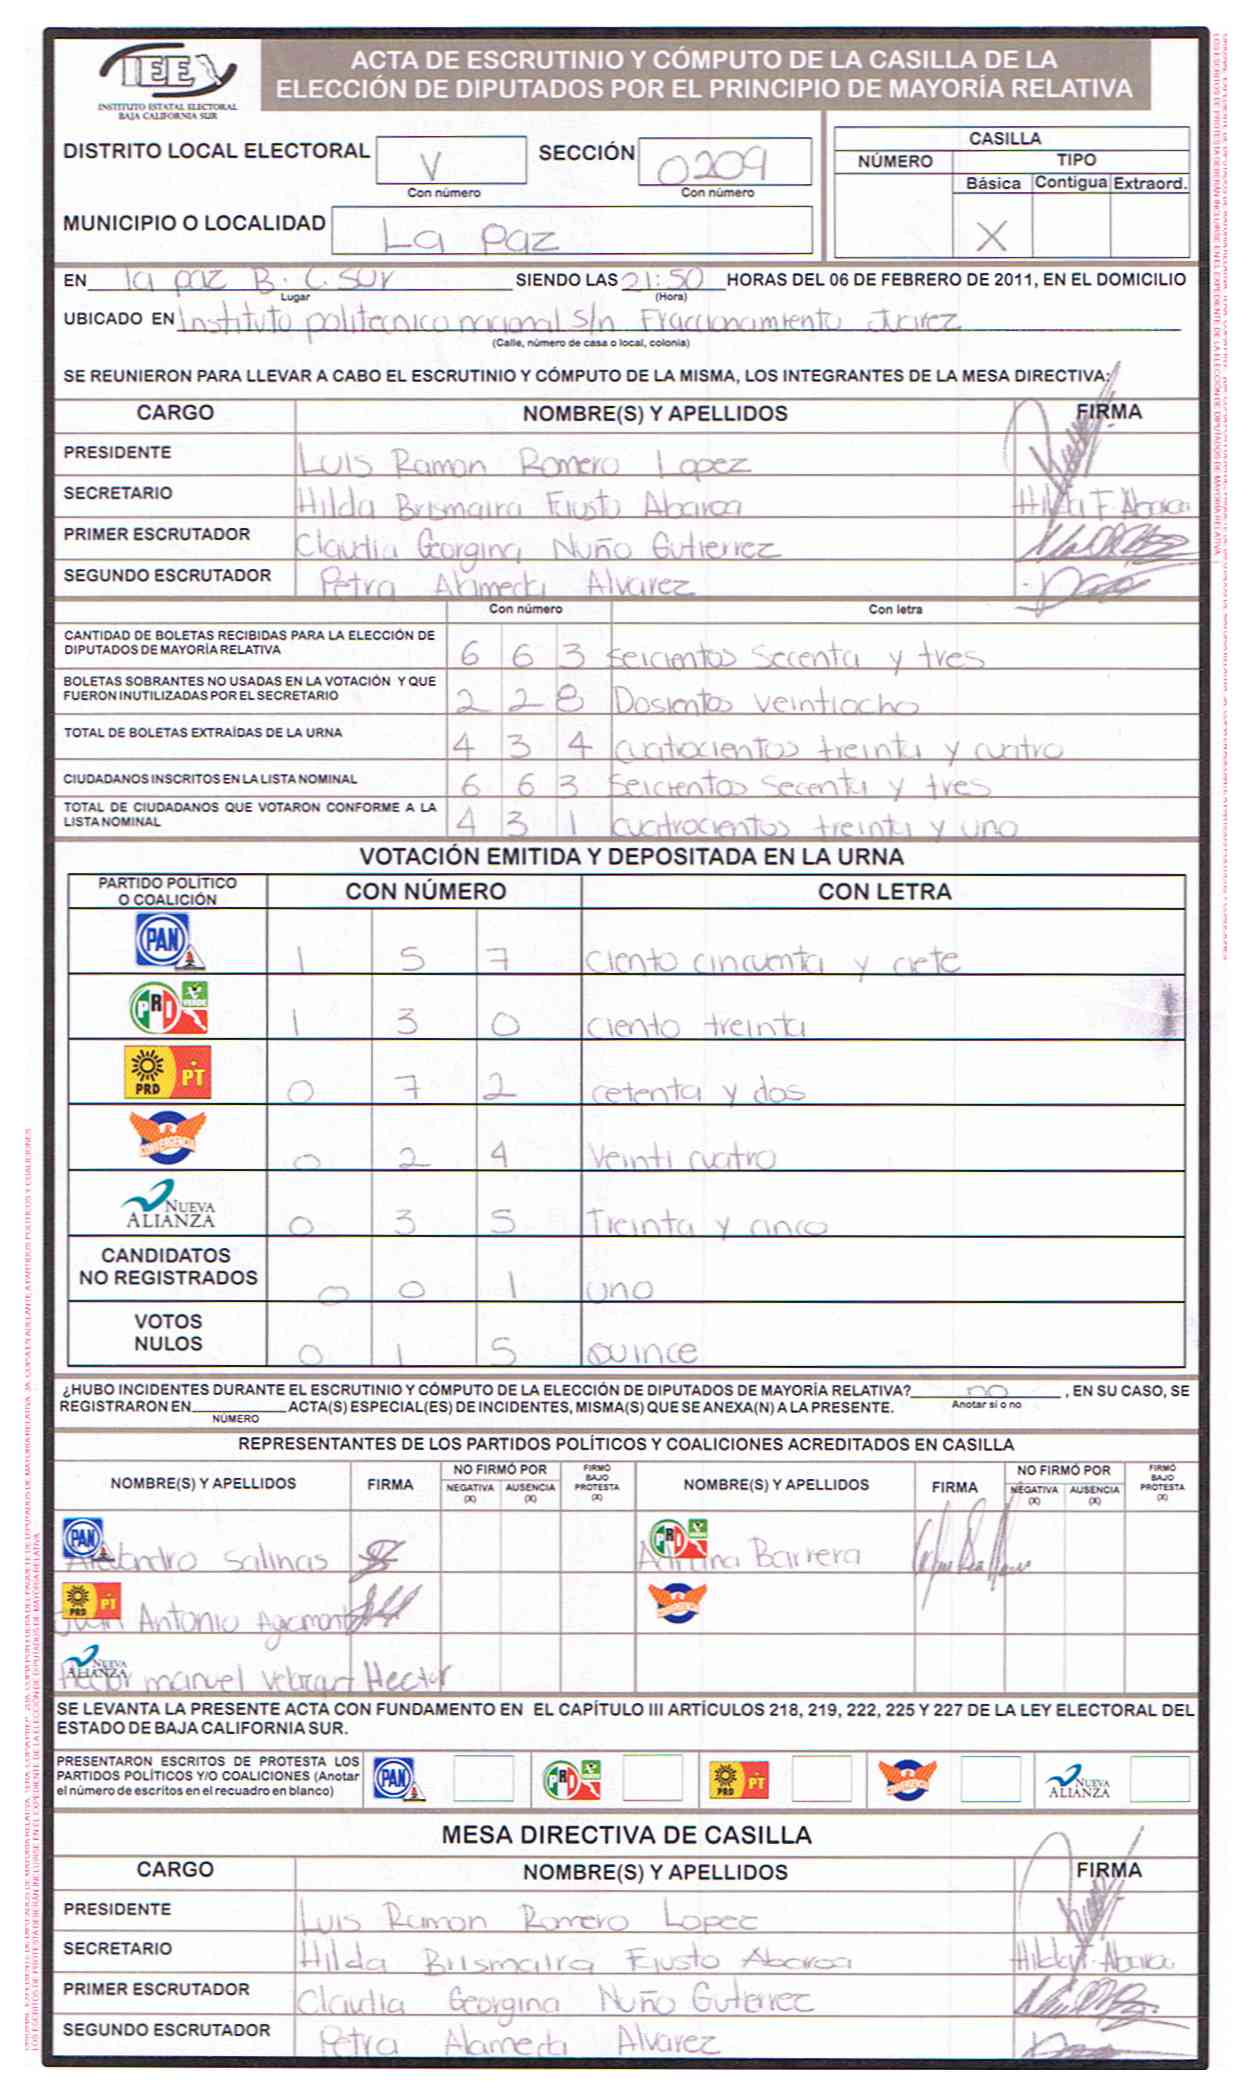 IEE
INSTITUTO ESTATAL ELECTORAL
BAJA CALIFORNIA SUR
ACTA DE ESCRUTINIO Y CÓMPUTO DE LA CASILLA DE LA
ELECCIÓN DE DIPUTADOS POR EL PRINCIPIO DE MAYORÍA RELATIVA
DISTRITO LOCAL ELECTORAL V SECCIÓN 0209
Con número Con número
MUNICIPIO O LOCALIDAD La paz
CASILLA
NÚMERO TIPO
Básica Contigua Extraord.
X
EN la paz B. C. SUR SIENDO LAS 21:50 HORAS DEL 06 DE FEBRERO DE 2011, EN EL DOMICILIO
Lugar (Hora)
UBICADO EN Instituto politecnico nacional s/n Fraccionamiento Juarez
(Calle, número de casa o local, colonia)
SE REUNIERON PARA LLEVAR A CABO EL ESCRUTINIO Y CÓMPUTO DE LA MISMA, LOS INTEGRANTES DE LA MESA DIRECTIVA:
CARGO NOMBRE(S) Y APELLIDOS FIRMA
PRESIDENTE Luis Ramon Romero Lopez
SECRETARIO Hilda Brismaira Fausto Abaroa Hilda F. Abaroa
PRIMER ESCRUTADOR Claudia Georgina Nuño Gutierrez
SEGUNDO ESCRUTADOR Petra Alameda Alvarez
Con número Con letra
CANTIDAD DE BOLETAS RECIBIDAS PARA LA ELECCIÓN DE
DIPUTADOS DE MAYORÍA RELATIVA 6 6 3 Seicientos Secenta y tres
BOLETAS SOBRANTES NO USADAS EN LA VOTACIÓN Y QUE
FUERON INUTILIZADAS POR EL SECRETARIO 2 2 8 Dosientos veintiocho
TOTAL DE BOLETAS EXTRAÍDAS DE LA URNA 4 3 4 cuatrocientos treinta y cuatro
CIUDADANOS INSCRITOS EN LA LISTA NOMINAL 6 6 3 Seicientos Secenta y tres
TOTAL DE CIUDADANOS QUE VOTARON CONFORME A LA
LISTA NOMINAL 4 3 1 cuatrocientos treinta y uno
VOTACIÓN EMITIDA Y DEPOSITADA EN LA URNA
PARTIDO POLÍTICO
O COALICIÓN CON NÚMERO CON LETRA
PAN 1 5 7 ciento cincuenta y ciete
PRI VERDE 1 3 0 ciento treinta
PRD PT 0 7 2 cetenta y dos
CONVERGENCIA 0 2 4 Veinti cuatro
NUEVA ALIANZA 0 3 5 Treinta y cinco
CANDIDATOS
NO REGISTRADOS 0 0 1 uno
VOTOS
NULOS 0 1 5 Quince
¿HUBO INCIDENTES DURANTE EL ESCRUTINIO Y CÓMPUTO DE LA ELECCIÓN DE DIPUTADOS DE MAYORÍA RELATIVA? no , EN SU CASO, SE
REGISTRARON EN ACTA(S) ESPECIAL(ES) DE INCIDENTES, MISMA(S) QUE SE ANEXA(N) A LA PRESENTE. Anotar si o no
NÚMERO
REPRESENTANTES DE LOS PARTIDOS POLÍTICOS Y COALICIONES ACREDITADOS EN CASILLA
NOMBRE(S) Y APELLIDOS FIRMA NO FIRMÓ POR NEGATIVA (X) AUSENCIA (X) FIRMÓ BAJO PROTESTA (X) NOMBRE(S) Y APELLIDOS FIRMA NO FIRMÓ POR NEGATIVA (X) AUSENCIA (X) FIRMÓ BAJO PROTESTA (X)
PAN Alejandro Salinas PRI VERDE Adriana Barrera
PRD PT Juan Antonio CONVERGENCIA
NUEVA ALIANZA Hector manuel Hector
SE LEVANTA LA PRESENTE ACTA CON FUNDAMENTO EN EL CAPÍTULO III ARTÍCULOS 218, 219, 222, 225 Y 227 DE LA LEY ELECTORAL DEL
ESTADO DE BAJA CALIFORNIA SUR.
PRESENTARON ESCRITOS DE PROTESTA LOS
PARTIDOS POLÍTICOS Y/O COALICIONES (Anotar
el número de escritos en el recuadro en blanco)
PAN PRI VERDE PRD PT CONVERGENCIA NUEVA ALIANZA
MESA DIRECTIVA DE CASILLA
CARGO NOMBRE(S) Y APELLIDOS FIRMA
PRESIDENTE Luis Ramon Romero Lopez
SECRETARIO Hilda Brismaira Fausto Abaroa Hilda F. Abaroa
PRIMER ESCRUTADOR Claudia Georgina Nuño Gutierrez
SEGUNDO ESCRUTADOR Petra Alameda Alvarez